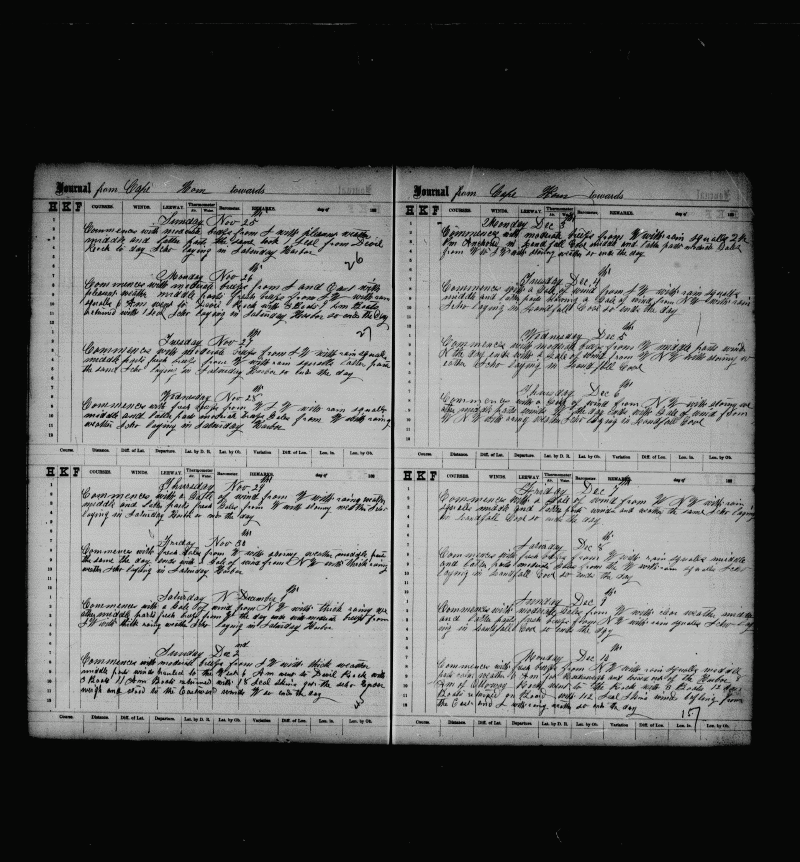 Journal from Cape Horn towards
H K F COURSES. WINDS. LEEWAY. Thermometer Air. Water. Barometer. REMARKS. day of 188
Sunday Nov 25th
Commences with moderate breeze from S with pleasant weather
middle and latter parts the same took 1 seal from Devil
Rock to day Schr laying in Saturday Harbor
26
Monday Nov 26th
Commences with moderate breeze from S and East with
pleasant weather middle parts fresh breeze from S W with rain
squalls 6 Am went to Devil Rock with 3 Boats 9 Am Boats
returned with 1 seal Schr laying in Saturday Harbor so ends the Day
27
Tuesday Nov 27th
Commences with moderate breeze from S W with rain squalls
middle parts fresh breeze from W with rain squalls latter parts
the same Schr laying in Saturday Harbor so ends the day
Wednesday Nov 28th
Commences with fresh breeze from W S W with rain squalls
middle and latter parts moderate Gales from W with rainy
weather Schr laying in Saturday Harbor
Course. Distance. Diff. of Lat. Departure. Lat. by D. R. Lat. by Ob. Variation Diff. of Lon. Lon. In. Lon. by Ob.
H K F COURSES. WINDS. LEEWAY. Thermometer Air. Water. Barometer. REMARKS. day of 188
Thursday Nov 29th
Commences with a Gale of wind from W with rainy weather
middle and latter parts fresh Gales from W with stormy weather Schr
laying in Saturday Harbor so ends the day
Friday Nov 30th
Commences with fresh Gales from W with stormy weather middle parts
the same the day ends with a Gale of wind from N W with thick rainy
weather Schr laying in Saturday Harbor
Saturday December 1st
Commences with a Gale of wind from N W with thick rainy wea
ther middle parts fresh breeze from W the day ends with moderate breeze from
S W with thick rainy weather Schr laying in Saturday Harbor
Sunday Dec 2nd
Commences with moderate breeze from S W with thick weather
middle parts winds hauled to the West 6 Am went to Devil Rock with
3 Boats 11 Am Boats returned with 18 seal skins got the schr under
weigh and stood to the Eastward winds W so ends the day
Course. Distance. Diff. of Lat. Departure. Lat. by D. R. Lat. by Ob. Variation Diff. of Lon. Lon. In. Lon. by Ob.
Journal from Cape Horn towards
H K F COURSES. WINDS. LEEWAY. Thermometer Air. Water. Barometer. REMARKS. day of 188
Monday Dec 3th
Commences with moderate breeze from W with rain squalls 2
Pm Anchored in Landfall Cove middle and latter parts moderate Gales
from W to S W with stormy weather so ends the day
Tuesday Dec 4th
Commences with a Gale of wind from S W with rain squalls
middle and latter parts blowing a Gale of wind from N W with rain
Schr laying in Landfall Cove so ends the day
Wednesday Dec 5th
middle parts winds
N the day ends with a Gale of wind from W N W with stormy w
eather Schr laying in Landfall Cove
Thursday Dec 6th
Commences with a Gale of wind from N W with stormy we
ather middle parts winds W the day ends with Gale of wind from
W N W with rainy weather Schr laying in Landfall Cove
Course. Distance. Diff. of Lat. Departure. Lat. by D. R. Lat. by Ob. Variation Diff. of Lon. Lon. In. Lon. by Ob.
H K F COURSES. WINDS. LEEWAY. Thermometer Air. Water. Barometer. REMARKS. day of 188
Friday Dec 7th
Commences with a Gale of wind from W N W with rain
squalls middle and latter parts winds and weather the same Schr laying
in Landfall Cove so ends the day
Saturday Dec
Commences with fresh Gales from W with rain squalls middle
and latter parts moderate Gales from the W with rain squalls Schr
laying in Landfall Cove so ends the day
Sunday Dec
Commences with moderate Gales from W with clear weather middle
and latter parts fresh breeze from N W with rain squalls Schr lay
ing in Landfall Cove so ends the day
Monday Dec
Commences with fresh breeze from N W with rain squalls middle
parts calm weather 6 Am got underweigh and towed out of the Harbor 8
went to the Rock with 3 Boats 12
Boats returned on board with 112 Seal Skins winds baffling from
the East and S with rainy weather so ends the day
157
Course. Distance. Diff. of Lat. Departure. Lat. by D. R. Lat. by Ob. Variation Diff. of Lon. Lon. In. Lon. by Ob.